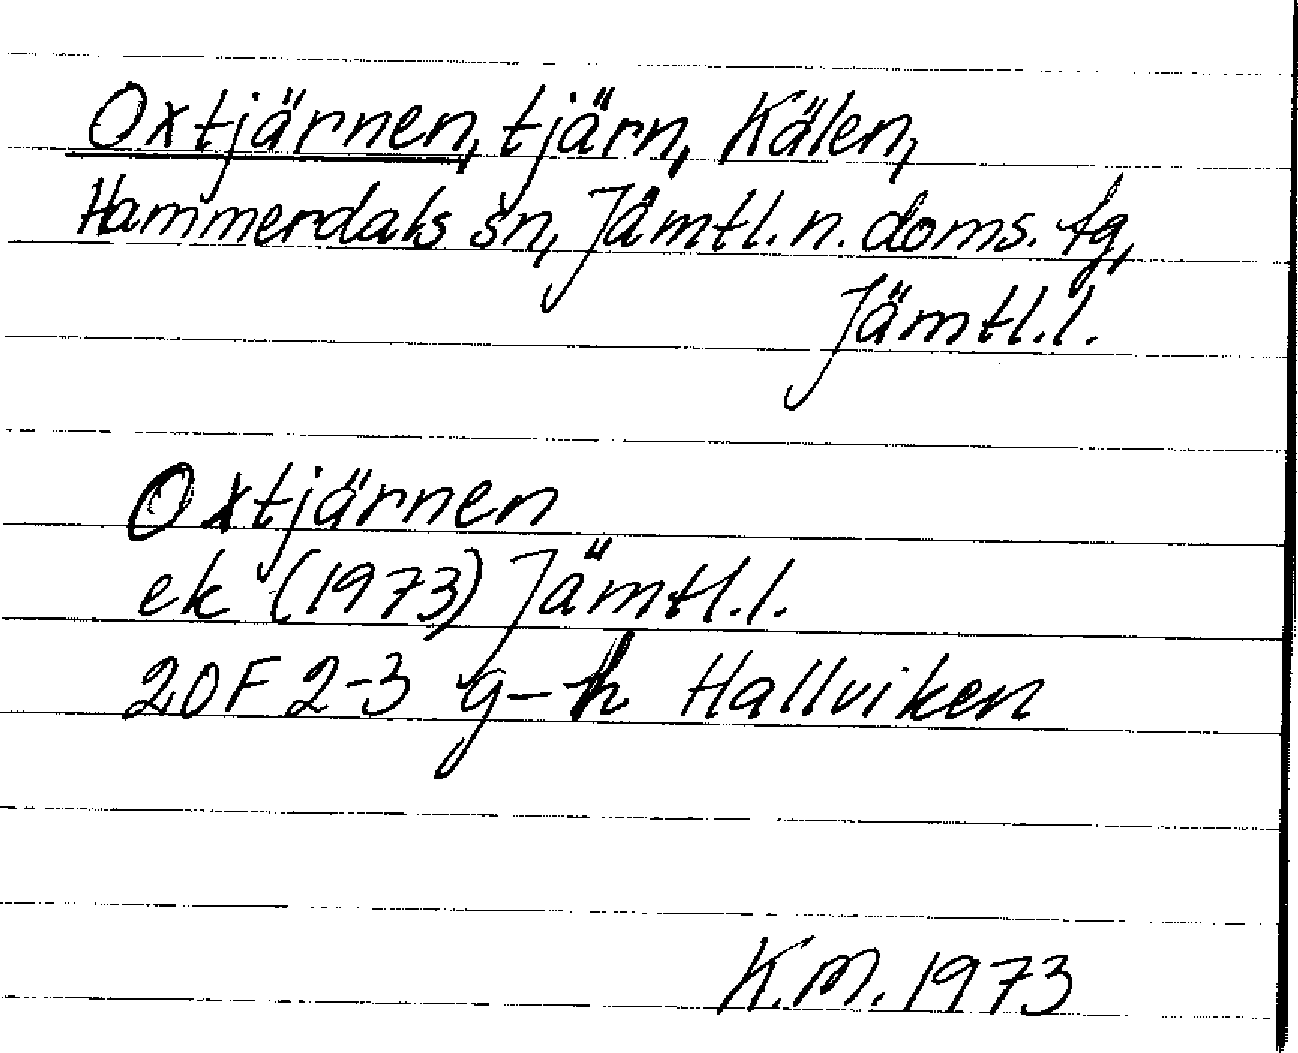 Oxtjärnen, tjärn, Kälen,
Hammerdals sn, Jämtl. n. doms. tg,
Jämtl. l.
Oxtjärnen
ek (1973) Jämtl. l.
20F 2-3 g-h Hallviken
K.M. 1973